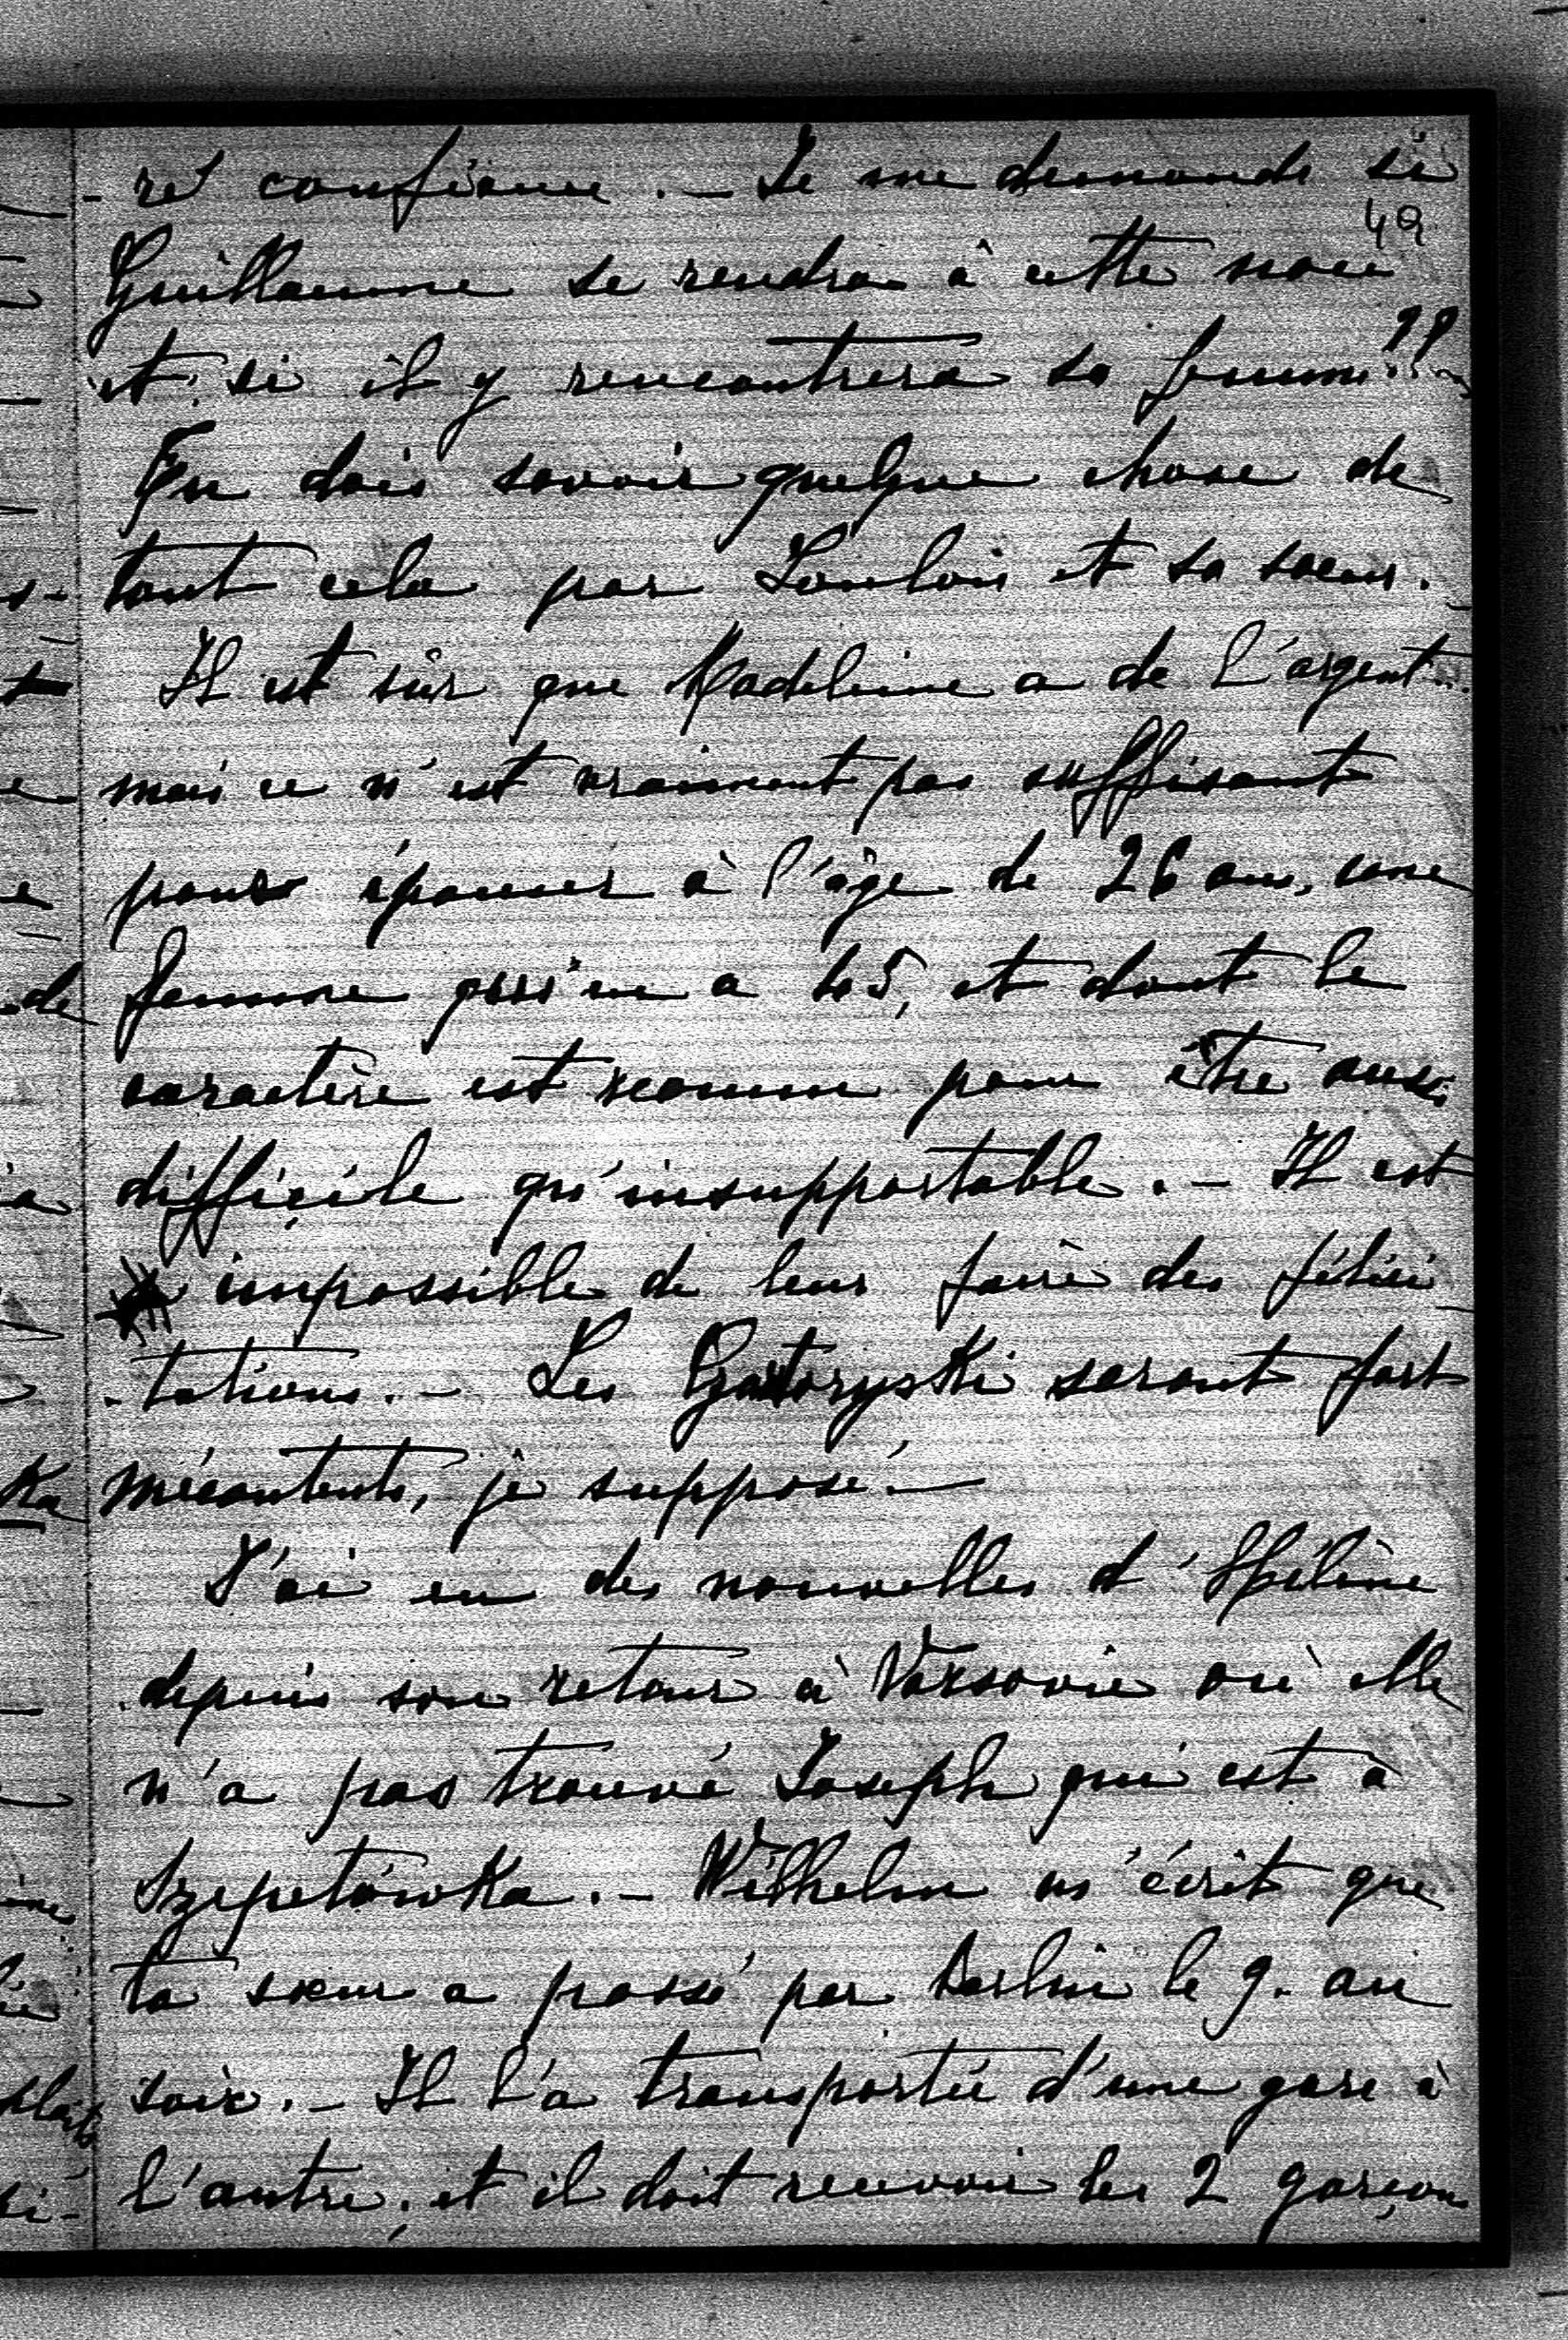 - ret confiance. — Je me demande si
49
Guillaume se rendra à cette noce
et si il y rencontrera sa femme??..
Tu dois savoir quelque chose de
tout cela par Loulou et sa sœur.
Il est sûr que Madeleine a de l'argent...
mais ce n'est vraiment pas suffisant
pour épouser à l'âge de 26 ans, une
femme qui en a 45, et dont le
caractère est reconnu pour être aussi
difficile qu'insupportable. — Il est
impossible de leur faire des félici
-tations. — Les Czartoryski seront fort
mécontents, je suppose. —
J'ai eu des nouvelles d'Hélène
depuis son retour à Varsovie où elle
n'a pas trouvé Joseph qui est à
Szepetówka. — Wilhelm m'écrit que
ta sœur a passé par Berlin le 9. au
soir. — Il l'a transportée d'une gare à
l'autre, et il doit recevoir les 2 garçons